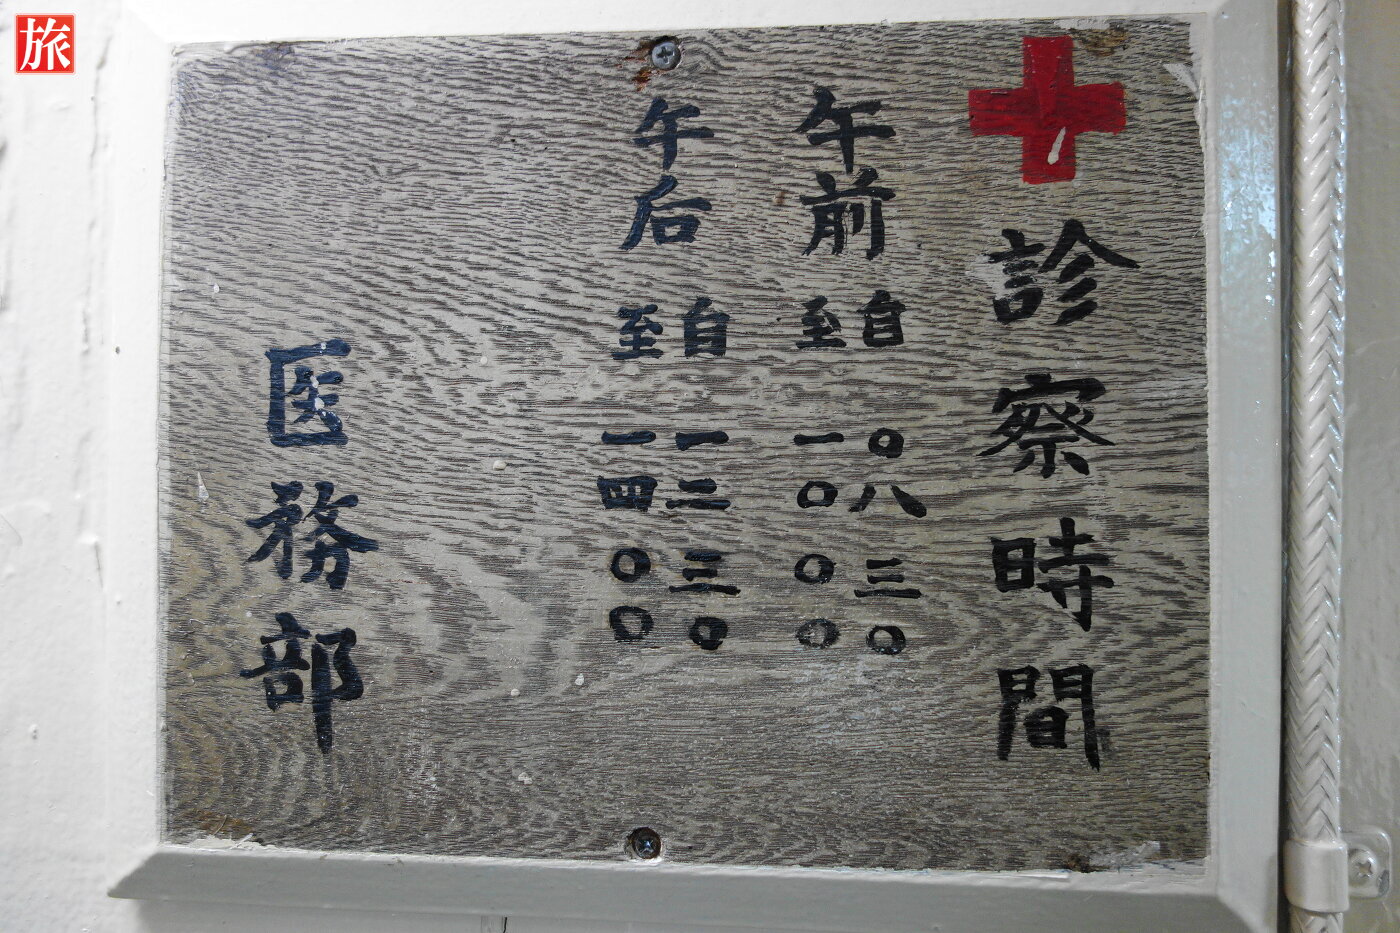 診察時間
午前 自 〇八三〇
至 一〇〇〇
午后 自 一二三〇
至 一四〇〇
医務部
旅